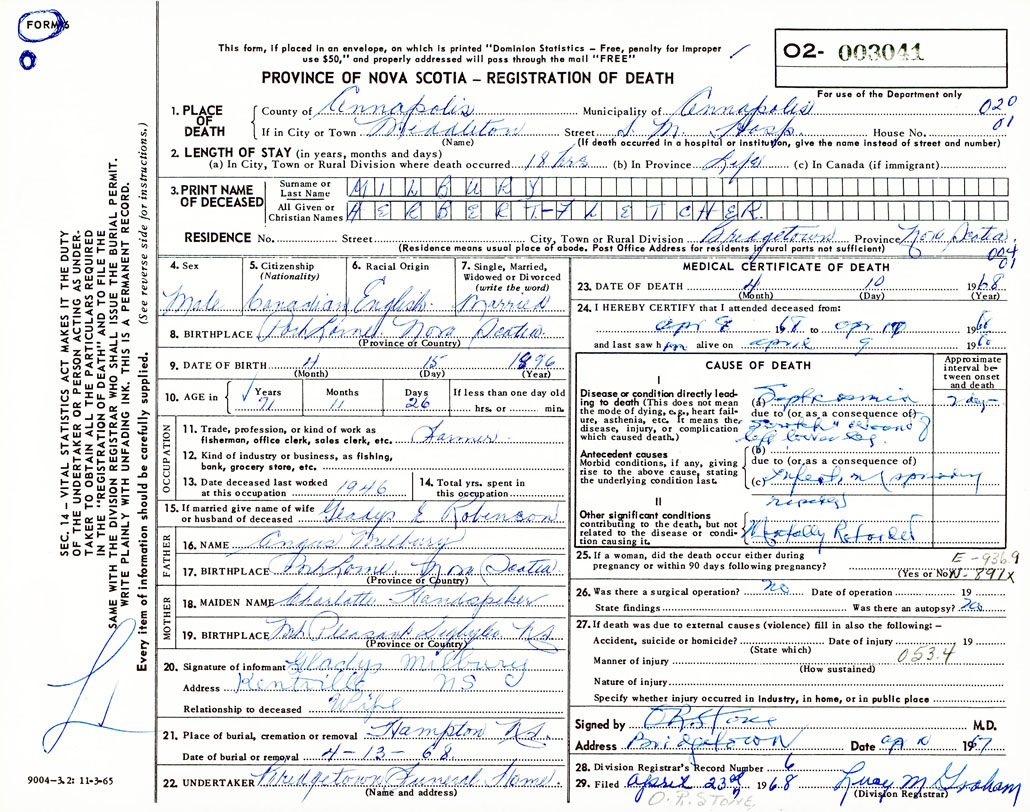 FORM 6
This form, if placed in an envelope, on which is printed "Dominion Statistics – Free, penalty for improper
use $50," and properly addressed will pass through the mail "FREE"
PROVINCE OF NOVA SCOTIA – REGISTRATION OF DEATH
O2- 003041
For use of the Department only
1. PLACE OF DEATH
County of Annapolis Municipality of Annapolis 020
If in City or Town Middleton Street S. M. Hosp. House No. 01
(Name) (If death occurred in a hospital or institution, give the name instead of street and number)
2. LENGTH OF STAY (in years, months and days)
(a) In City, Town or Rural Division where death occurred 18 hrs (b) In Province Life (c) In Canada (if immigrant)
3. PRINT NAME OF DECEASED
Surname or Last Name MILBURY
All Given or Christian Names HERBERT-FLETCHER
RESIDENCE No. Street City, Town or Rural Division Bridgetown Province Nova Scotia
(Residence means usual place of abode. Post Office Address for residents in rural parts not sufficient)
004
01
4. Sex 5. Citizenship (Nationality) 6. Racial Origin 7. Single, Married, Widowed or Divorced (write the word)
Male Canadian English Married
8. BIRTHPLACE Port Lorne Nova Scotia
(Province or Country)
9. DATE OF BIRTH 4 15 1896
(Month) (Day) (Year)
10. AGE in Years Months Days If less than one day old
71 11 26 hrs. or min.
OCCUPATION
11. Trade, profession, or kind of work as
fisherman, office clerk, sales clerk, etc. Farmer
12. Kind of industry or business, as fishing,
bank, grocery store, etc.
13. Date deceased last worked
at this occupation 1946
14. Total yrs. spent in
this occupation
15. If married give name of wife
or husband of deceased Gladys E Robinson
FATHER
16. NAME Angus Milbury
17. BIRTHPLACE Port Lorne Nova Scotia
(Province or Country)
MOTHER
18. MAIDEN NAME Charlotte Handspiker
19. BIRTHPLACE Mt Pleasant Digby Co NS
(Province or Country)
20. Signature of informant Gladys Milbury
Address Kentville NS
Relationship to deceased Wife
21. Place of burial, cremation or removal Hampton N.S.
Date of burial or removal 4-13-68
22. UNDERTAKER Bridgetown Funeral Home
(Name and address)
MEDICAL CERTIFICATE OF DEATH
23. DATE OF DEATH 4 10 1968
(Month) (Day) (Year)
24. I HEREBY CERTIFY that I attended deceased from:
Apr 8 to Apr 1968
and last saw him alive on April 9 19
CAUSE OF DEATH
Approximate interval between onset and death
I
Disease or condition directly leading to death (This does not mean the mode of dying, e.g., heart failure, asthenia, etc. It means the disease, injury, or complication which caused death.)
(a) Septicemia 2 day
due to (or as a consequence of)
"Scratch" wound of
left lower leg
Antecedent causes
Morbid conditions, if any, giving rise to the above cause, stating the underlying condition last.
(b)
due to (or as a consequence of)
(c) Infection
II
Other significant conditions
contributing to the death, but not related to the disease or condition causing it.
Mentally Retarded
25. If a woman, did the death occur either during
pregnancy or within 90 days following pregnancy?
(Yes or No)
E-936.9
N-891X
26. Was there a surgical operation? No Date of operation 19
State findings Was there an autopsy? No
27. If death was due to external causes (violence) fill in also the following: –
Accident, suicide or homicide? Date of injury 19
(State which)
053.4
Manner of injury
(How sustained)
Nature of injury
Specify whether injury occurred in industry, in home, or in public place
Signed by O.R. Stone M.D.
Address Bridgetown Date Ap 1967
28. Division Registrar's Record Number 6
29. Filed April 23rd 1968 Lucy M Graham
(Division Registrar)
O.R. STONE
SEC. 14 – VITAL STATISTICS ACT MAKES IT THE DUTY
OF THE UNDERTAKER OR PERSON ACTING AS UNDER-
TAKER TO OBTAIN ALL THE PARTICULARS REQUIRED
IN THE "REGISTRATION OF DEATH" AND TO FILE THE
SAME WITH THE DIVISION REGISTRAR WHO SHALL ISSUE THE BURIAL PERMIT.
WRITE PLAINLY WITH UNFADING INK. THIS IS A PERMANENT RECORD.
Every item of information should be carefully supplied. (See reverse side for instructions.)
9004-3.2: 11-3-65